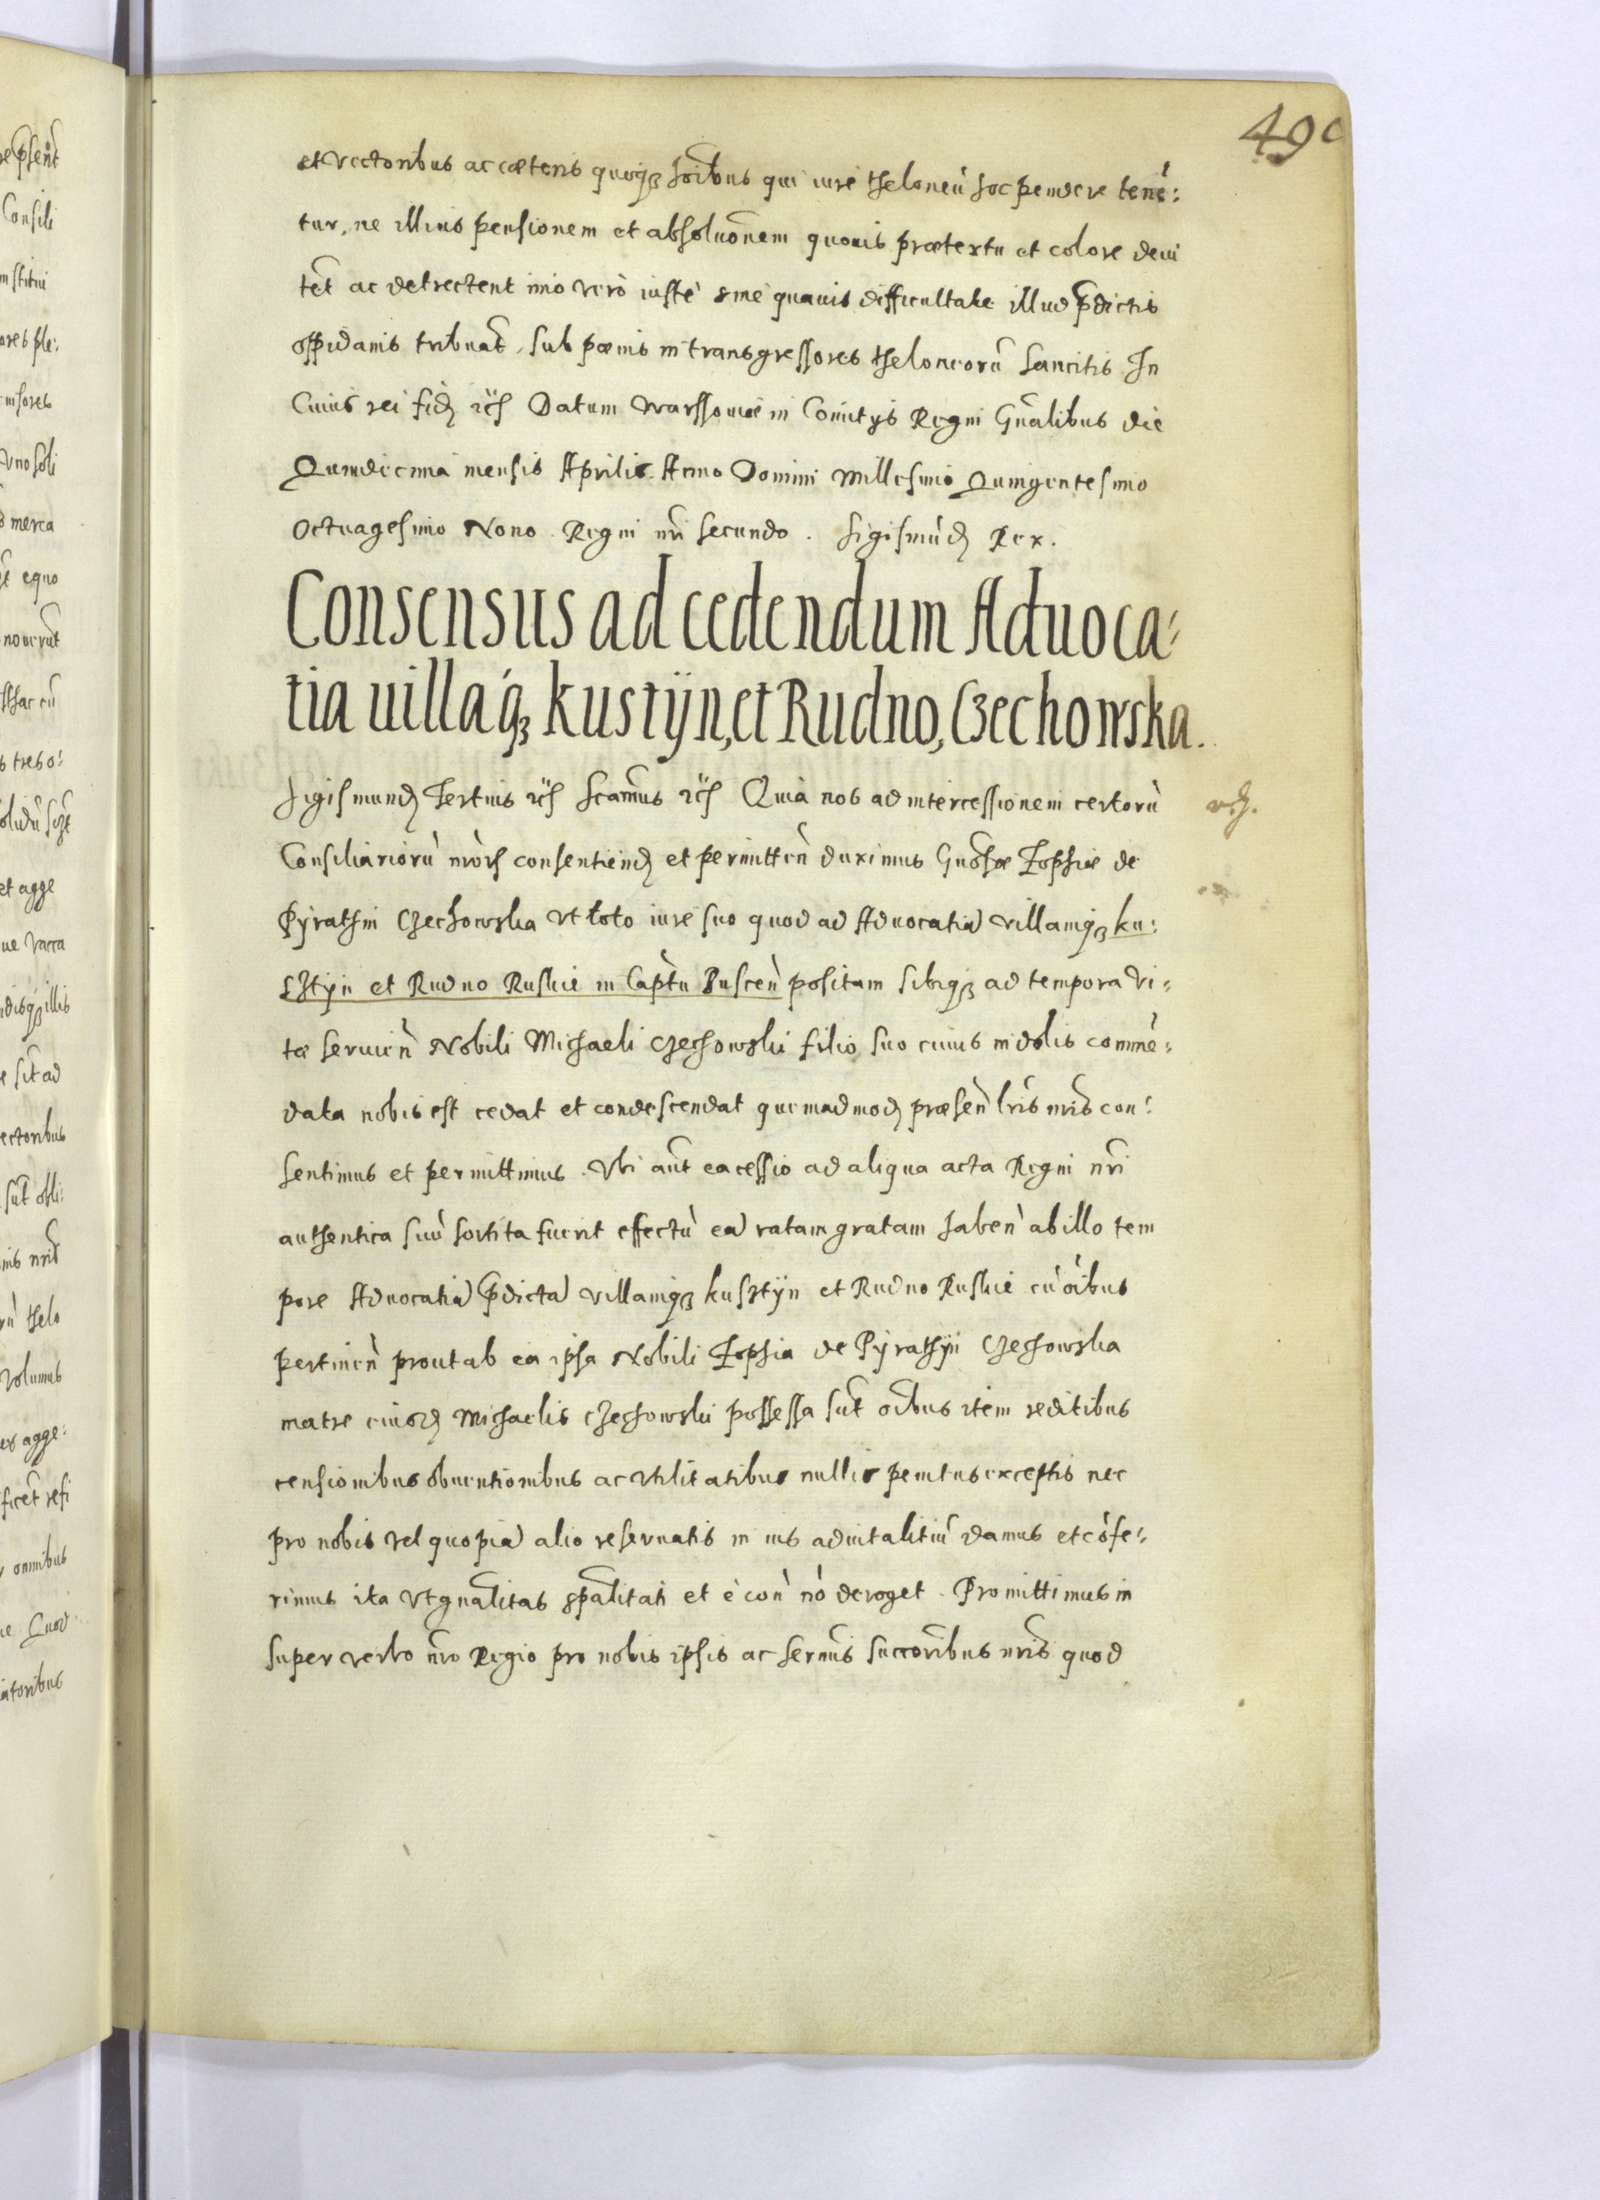 490
et vectoribus ac cæteris quibusq3 hoĩbus qui iure theloneũ hoc pendere tenẽ:
tur, ne illius pensionem et absoluõnem quouis prætextu et colore deui
tẽt ac detrectent imo verò iustè sine quauis difficultate illud p̃dictis
oppidanis tribuãt, sub pœnis in transgressores theloneorũ sancitis. In
Cuius rei fid₃ rc̃ Datum Warssouiæ in Comitijs Regni Gñalibus die
Quindecima mensis Aprilis. Anno Domini Millesimo Quingentesimo
Octuagesimo Nono. Regni nr̃i secundo. Sigismũd₃ Rex.
Consensus ad cedendum Aduoca:
tia uillaq̃₃ Kustijn, et Rudno, Czechowska.
Sigismund₃ Tertius rc̃ Scamus rc̃ Quia nos ad intercessionem certorũ
Consiliariorũ nr̃or consentiend₃ et permitten̄ duximus Gnõsæ Zophiæ de
Pyrathin Czechowska vt toto iure suo quod ad Aduocatiã villamq₃ Ku:
sztÿn et Rudno Ruskie in Capt̃u Buscen̄ positam sibiq₃ ad tempora vi:
tæ seruien̄ Nobili Michaeli Czechowski filio suo cuius indolis commẽ:
data nobis est cedat et condescendat quemadmod₃ præsen̄ lr̃is nr̃is con:
sentimus et permittimus. Vbi aũt ea cessio ad aliqua acta Regni nr̃i
authentica suũ sortita fuerit effectũ eã ratam gratam haben̄ ab illo tem
pore Aduocatiã p̃dictã villamq₃ Kusztÿn et Rudno Ruskie cũ oĩbus
pertinen̄ prout ab ea ipsa Nobili Zophia de Pÿrathÿn Czechowska
matre eiusd₃ Michaelis Czechowski possessa sũt oĩbus item reditibus
censionibus obuentionibus ac vtilitatibus nullis penitus exceptis nec
pro nobis vel quopiã alio reseruatis in ius aduitalitiũ damus et cõfe:
rimus ita vt gñalitas sp̃alitati et è con̄ nõ deroget. Promittimus in
super verbo nr̃o Regio pro nobis ipsis ac Sermis succõribus nr̃is quod